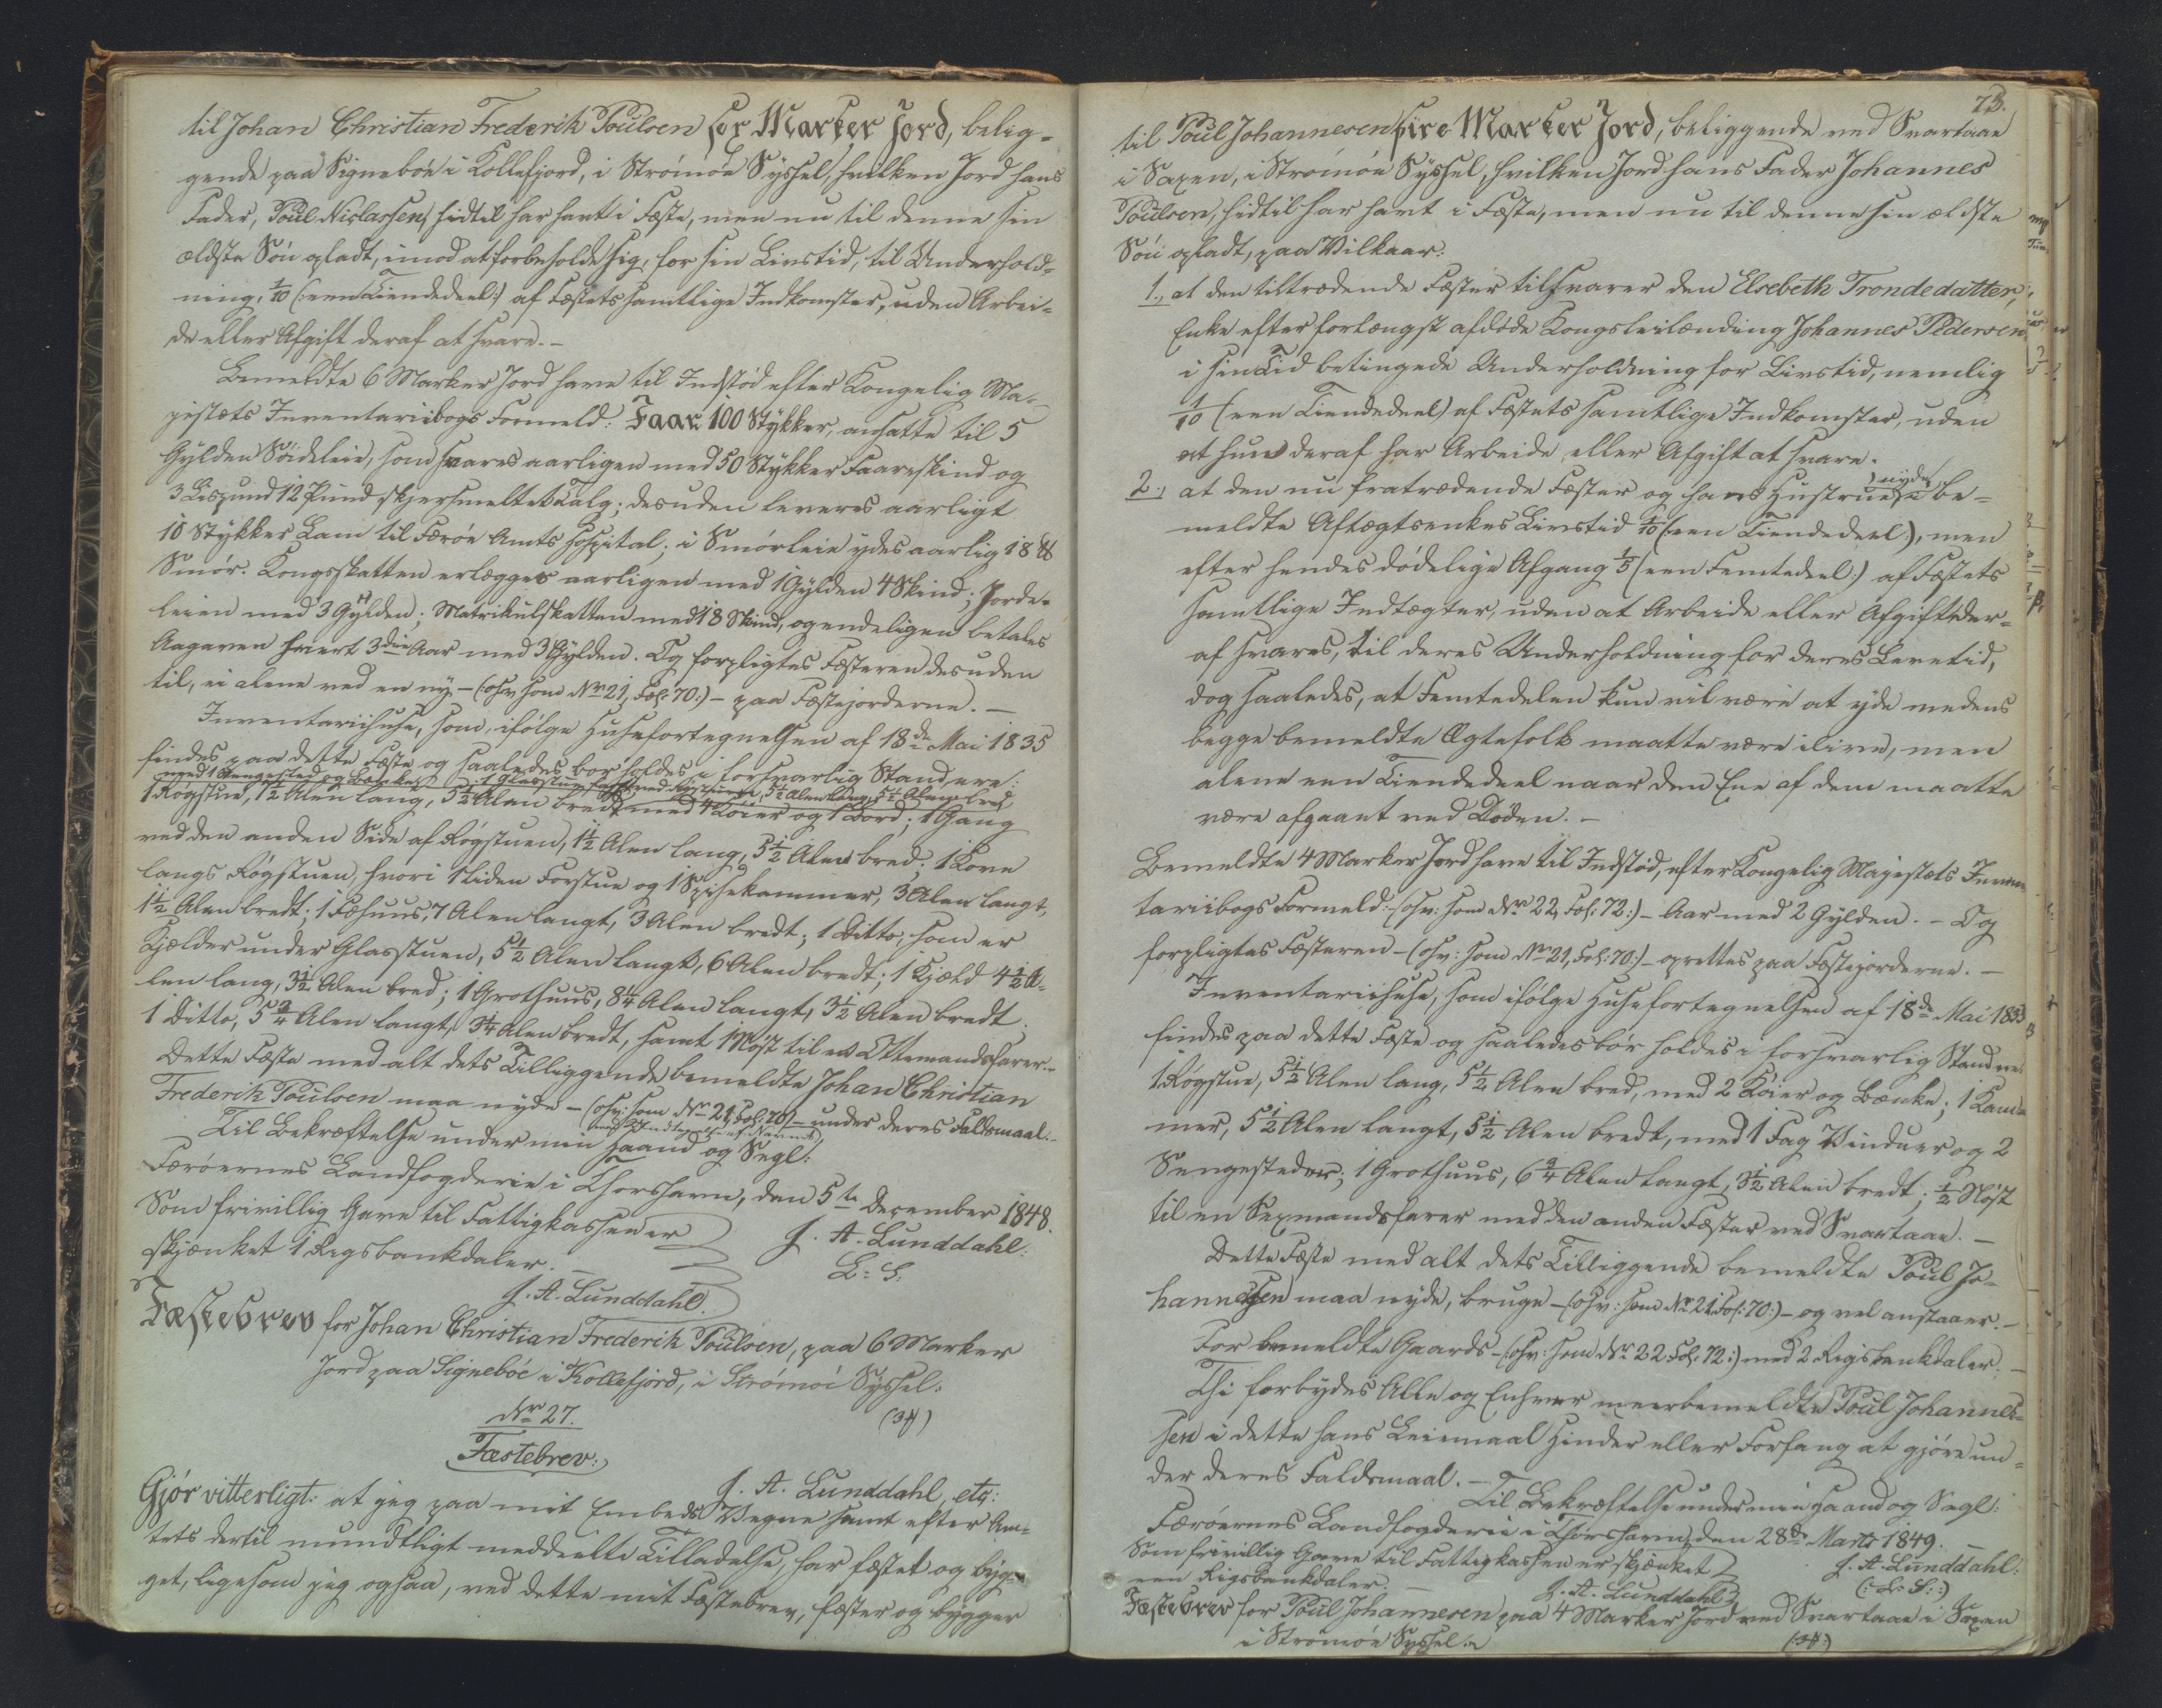 til Johan Christian Frederik Poulsen sex Marker Jord, belig-
gende paa Signebøe i Kollefjord, i Strømøe Syssel, hvilken Jord hans
Fader, Poul Niclassen, hidtil har havt i Fæste, men nu til denne sin
ældste Søn opladt, imod at forbeholde sig, for sin Livstid, til Underhold-
ning, 1/10 (:een Tiendedeel:) af Fæstets samtlige Indkomster, uden Arbei-
de eller Afgift deraf at svare.-
Bemeldte 6 Marker Jord have til Indstød efter Kongelig Ma-
jestæts Inventariibogs Formeld: Faar 100 Stykker, ansatte til 5
Gylden Södeleie, som svares aarligen med 50 Stykker Faareskind og
3 Lispund 12 Pund skjersmeltet Talg; desuden leveres aarligt
10 Stykker Lam til Færøe Amts Hospital; i Smörleie ydes aarlig 18 ℔
Smör. Kongsskatten erlægges aarligen med 1 Gylden 4 Skind; Jorde-
leien med 3 Gylden; Matrikulskatten med 18 Skind, og endeligen betales
Aagaven hvert 3die Aar med 3 Gylden. Og forpligtes Fæsteren desuden
til, ei alene ved en ny - (:osv. som No 21, Fol: 70:) - paa Fæstejorderne. -
Inventariihuse, som, ifølge Husefortegnelsen af 18de Mai 1835
findes paa dette Fæste og saaledes bör holdes i forsvarlig Stand, ere:
med 1 Sengested og Bænke; 1 Glasstue 5½ Alen lang, 5½ Alen bred
1 Røgstue, 7½ Alen lang, 5½ Alen bred med 4 Køier og 1 Bord; 1 Gang
ved den anden Side af Røgstuen, 1½ Alen lang, 5½ Alen bred; 1 Kove
langs Røgstuen, hvori 1 liden Forstue og 1 Spisekammer, 3 Alen langt,
1½ Alen bredt; 1 Fæhuus, 7 Alen langt, 3 Alen bredt; 1 Ditto, som er
Kjælder under Glasstuen, 5½ Alen langt, 6 Alen bredt; 1 Hjald 4½ A-
len lang, 3½ Alen bred; 1 Grothuus, 8¼ Alen langt, 3½ Alen bredt.
1 Ditto, 5¾ Alen langt, 3¼ Alen bredt, samt 1 Nøst til en Ottemandsfarer.-
Dette Fæste med alt dets Tilliggende bemeldte Johan Christian
Frederik Poulsen maa nyde - (:osv: som No 21, Fol: 70:) - under deres Faldsmaal.-
med Indtagelse af Navnet
Til Bekræftelse under min Haand og Segl:
Færøernes Landfogderie i Thorshavn, den 5te December 1848.
Som frivillig Gave til Fattigkassen er
J. A. Lunddahl:
skjænket 1 Rigsbankdaler. -
L: S:
J. A. Lunddahl.
Fæstebrev for Johan Christian Frederik Poulsen, paa 6 Marker
Jord paa Signebøe i Kollefjord, i Strømøe Syssel:
No 27.
Fæstebrev:
J. A. Lunddahl, etc:
Gjør vitterligt: at jeg paa mit Embeds Vegne samt efter Am-
tets dertil mundtligt meddeelte Tilladelse, har fæstet og byg-
get, ligesom jeg ogsaa, ved dette mit Fæstebrev, fæster og bygger
73.
til Poul Johannesen fire Marker Jord, beliggende ved Svartaae
i Saxen, i Strømøe Syssel, hvilken Jord hans Fader Johannes
Poulsen, hidtil har havt i Fæste, men nu til denne sin ældste
Søn opladt, paa Vilkaar:
1., at den tiltrædende Fæster tilsvarer den Elsebeth Trondedatter,
Enke efter forlængst afdøde Kongsleilænding Johannes Pedersen
i sin Tid betingede Underholdning for Livstid, nemlig
1/10 (een Tiendedeel) af Fæstets samtlige Indkomster, uden
at hun deraf har Arbeide eller Afgift at svare.
2., at den nu fratrædende Fæster og hans Hustrue nyde be-
meldte Aftægtsenkes Livstid 1/10 (:een Tiendedeel:), men
efter hendes dødelige Afgang 1/5 (een Femtedeel:) af Fæstets
samtlige Indtægter, uden at Arbeide eller Afgift der-
af svares, til deres Underholdning for deres Levetid,
dog saaledes, at Femtedelen kun vil være at yde medens
begge bemeldte Ægtefolk maatte være ilive, men
alene een Tiendedeel naar den Ene af dem maatte
være afgaaet ved Døden.-
Bemeldte 4 Marker Jord have til Indstød, efter Kongelig Majestæts Inven
tariibogs Formeld:- (:osv: som No 22, Fol: 72:) - Aar med 2 Gylden. - Og
forpligtes Fæsteren - (:osv: som No 21, Fol: 70:) - oprettes paa Fæstejorderne. -
Inventariihuse, som ifølge Husefortegnelsen af 18de Mai 1835
findes paa dette Fæste og saaledes bör holdes i forsvarlig Stand ere:
1 Røgstue, 5½ Alen lang, 5½ Alen bred, med 2 Køier og Bænke; 1 Kam-
mer, 5½ Alen langt, 5½ Alen bredt, med 1 Fag Vinduer og 2
Sengesteder; 1 Grothuus, 6¾ Alen langt, 3½ Alen bredt; ½ Nøst
til en Sexmandsfarer med den anden Fæster ved Svartaae. -
Dette Fæste med alt dets Tilliggende bemeldte Poul Jo-
hannesen maa nyde, bruge - (:osv: som No 21 Fol: 70:) - og vel anstaaer.-
For bemeldte Gaards - (:osv: som No 22 Fol: 72:) med 2 Rigsbankdaler. -
Thi forbydes Alle og Enhver meerbemeldte Poul Johannes-
sen i dette hans Leiemaal Hinder eller Forfang at gjøre un-
der deres Faldsmaal. - Til Bekræftelse under min Haand og Segl:
Færøernes Landfogderie i Thorshavn, den 28de Marts 1849. -
Som frivillig Gave til Fattigkassen er skjænket
J. A. Lunddahl:
een Rigsbankdaler. -
(:L: S:)
J. A. Lunddahl
Fæstebrev for Poul Johannesen paa 4 Marker Jord ved Svartaae i Saxen
i Strømøe Syssel.